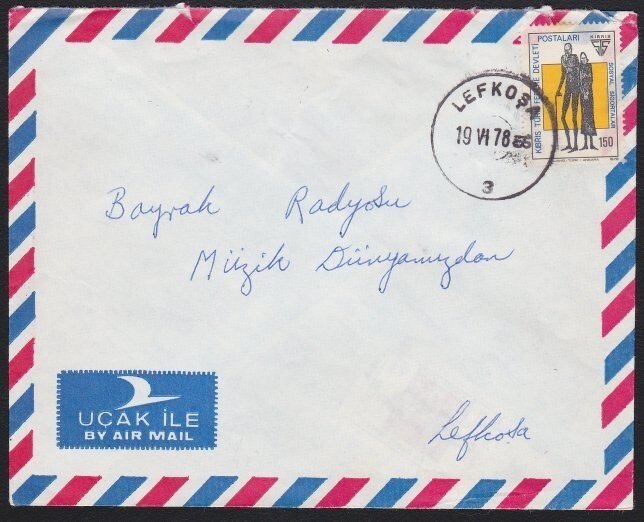 KIBRIS TÜRK FEDERE DEVLETİ
POSTALARI
KIBRIS
SOSYAL SİGORTALAR
150
LEFKOŞA
19 VI 78
3
Bayrak Radyosu
Müzik Dünyamızdan
UÇAK İLE
BY AIR MAIL
Lefkoşa